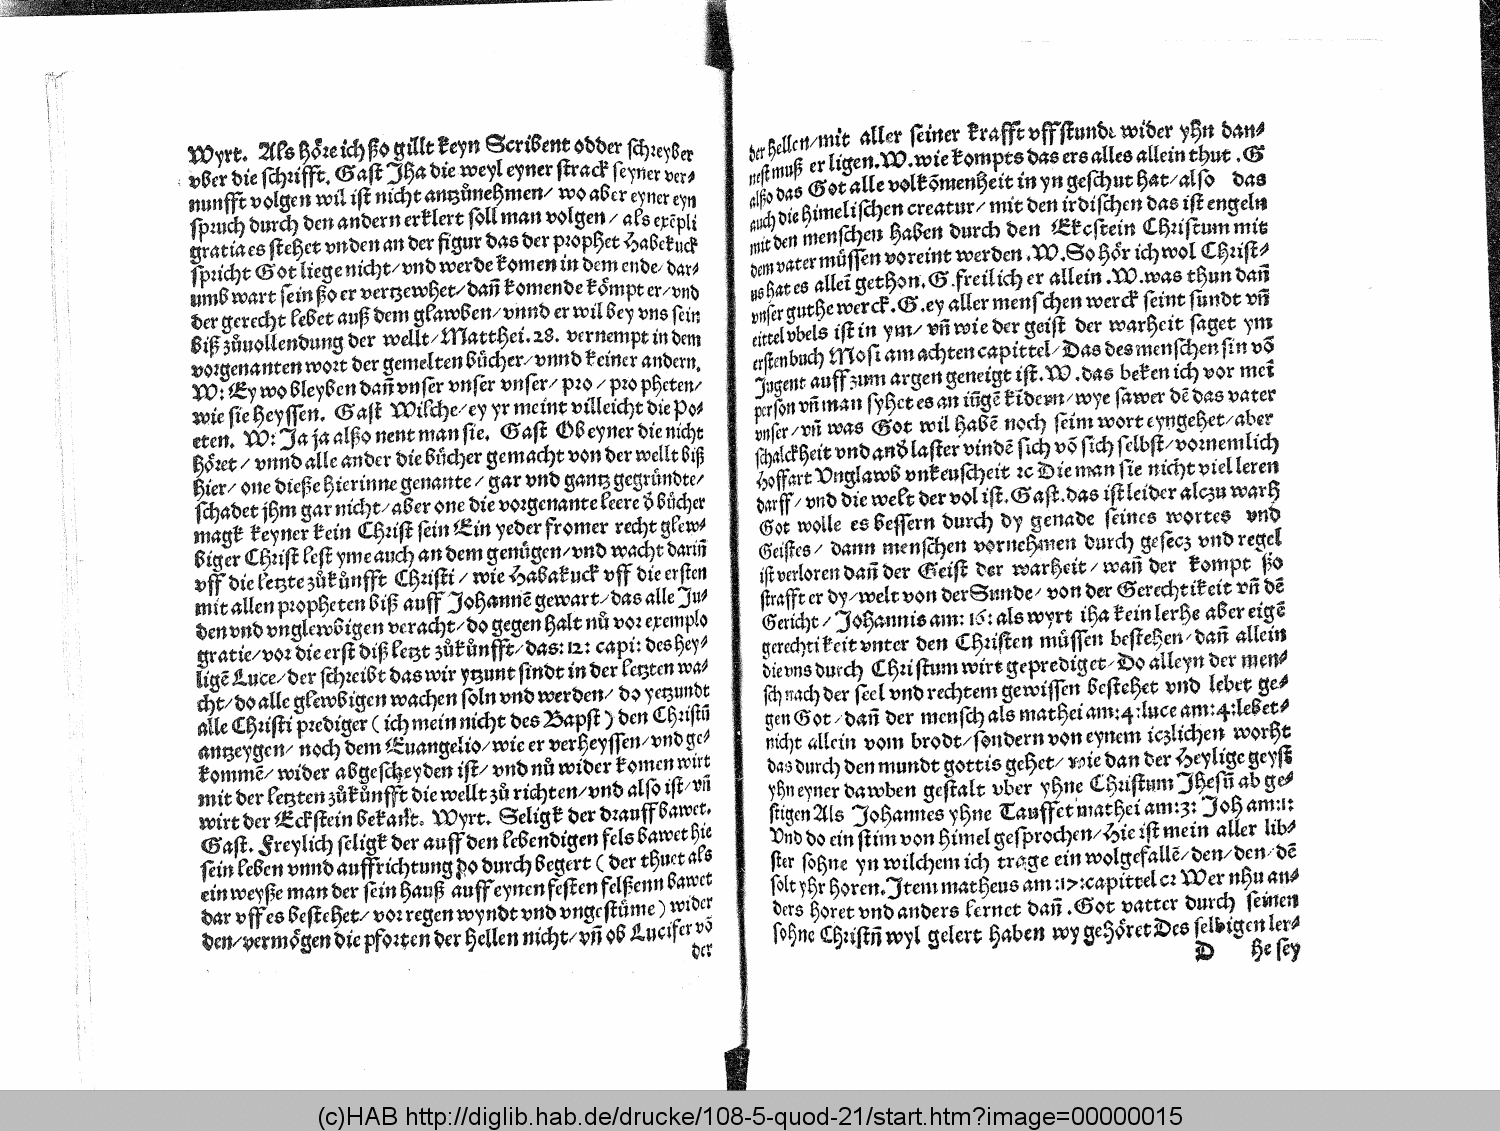 Wyrt. Als höre ich ßo gillt keyn Scribent odder schreyber
vber die schrifft. Gast Jha die weyl eyner strack seyner ver⸗
nunfft volgen wil ist nicht antzünehmen/ wo aber eyner eyn
spruch durch den andern erklert soll man volgen/ als exēpli
gratia es stehet vnden an der figur das der prophet Habekuck
spricht Got liege nicht/ vnd werde komen in dem ende/ dar⸗
umb wart sein ßo er vertzewhet/ dañ komende kömpt er/ vnd
der gerecht lebet auß dem glawben/ vnnd er wil bey vns sein
biß zůuollendung der wellt/ Matthei. 28. vernempt in dem
vorgenanten wort der gemelten bücher/ vnnd keiner andern.
W: Ey wo bleyben dañ vnser vnser vnser/ pro/ propheten/
wie sie heyssen. Gast Wilche/ ey yr meint villeicht die Po⸗
eten. W: Ja ja alßo nent man sie. Gast Ob eyner die nicht
höret/ vnnd alle ander die bücher gemacht von der wellt biß
hier/ one dieße hierinne genante/ gar vnd gantz gegründte/
schadet jhm gar nicht/ aber one die vorgenante leere d̄ bücher
magk keyner kein Christ sein Ein yeder fromer recht glew⸗
biger Christ lest yme auch an dem genügen/ vnd wacht dariñ
vff die letzte zůkůnfft Christi/ wie Habakuck vff die ersten
mit allen propheten biß auff Johannē gewart/ das alle Ju⸗
den vnd vnglewbigen veracht/ do gegen halt nů vor exemplo
gratie/ vor die erst diß letzt zůkůnfft/ das: 12: capi: des hey⸗
ligē Luce/ der schreibt das wir ytzunt sindt in der letzten wa⸗
cht/ do alle glewbigen wachen soln vnd werden/ do yetzundt
alle Christi prediger ( ich mein nicht des Bapst ) den Christū
antzeygen/ noch dem Euangelio/ wie er verheyssen/ vnd ge⸗
kommē/ wider abgescheyden ist/ vnd nů wider komen wirt
mit der letzten zůkůnfft die wellt zů richten/ vnd also ist/ vñ
wirt der Eckstein bekant. Wyrt. Seligk der drauff bawet.
Gast. Freylich seligk der auff den lebendigen fels bawet hie
sein leben vnnd auffrichtung ßo durch begert ( der thuet als
ein weyße man der sein hauß auff eynen festen felßenn bawet
dar vff es bestehet/ vor regen wyndt vnd vngestüme ) wider
den/ vermögen die pforten der hellen nicht/ vñ ob Lucifer vō
der
der hellen/ mit aller seiner krafft vffstunde wider yhn dan⸗
nest muß er ligen. W. wie kompts das ers alles allein thut. G
alßo das Got alle volkōmenheit in yn geschut hat/ also das
auch die himelischen creatur/ mit den irdischen das ist engeln
mit den menschen haben durch den Ekcstein Christum mit
dem vater müssen voreint werden. W. So hör ich wol Christ⸗
us hat es alleī gethon. G. freilich er allein. W. was thun dañ
vnser guthe werck. G. ey aller menschen werck seint sundt vñ
eittel vbels ist in ym/ vñ wie der geist der warheit saget ym
ersten buch Mosi am achten capittel/ Das des menschen sin vō
Jugent auff zum argen geneigt ist. W. das beken ich vor meī
person vñ man syhet es an iūgē kīdern/ wye sawer dē das vater
vnser/ vñ was Got wil habē noch seim wort eyngehet/ aber
schalckheit vnd and̄ laster vindē sich vō sich selbst/ vornemlich
Hoffart Vnglawb vnkeuscheit ꝛc Die man sie nicht viel leren
darff/ vnd die welt der vol ist. Gast. das ist leider alczu warh
Got wolle es bessern durch dy genade seines wortes vnd
Geistes/ dann menschen vornehmen durch gesecz vnd regel
ist verloren dañ der Geist der warheit/ wañ der kompt ßo
strafft er dy/ welt von der Sunde/ von der Gerechtikeit vñ dē
Gericht/ Johannis am: 16: als wyrt iha kein lerhe aber eigē
gerechtikeit vnter den Christen müssen bestehen/ dañ allein
die vns durch Christum wirt geprediget/ Do alleyn der men⸗
sch nach der seel vnd rechtem gewissen bestehet vnd lebet ge⸗
gen Got/ dañ der mensch als mathei am: 4: luce am: 4: lebet⸗
nicht allein vom brodt/ sondern von eynem iczlichen worht
das durch den mundt gottis gehet/ wie dan der Heylige geyst
yhn eyner dawben gestalt vber yhne Christum Jhesū ab ge⸗
stigen Als Johannes yhne Tauffet mathei am: 3: Joh am: 1:
Vnd do ein stim von himel gesprochen/ Hie ist mein aller lib⸗
ster sohne yn wilchem ich trage ein wolgefallē/ den/ den/ dē
solt yhr horen. Item matheus am: 17: capittel cꝛ Wer nhu an⸗
ders horet vnd anders lernet dañ. Got vatter durch seinen
sohne Christū wyl gelert haben wy gehöret Des selbigen ler⸗
D he sey
(c)HAB http://diglib.hab.de/drucke/108-5-quod-21/start.htm?image=00000015